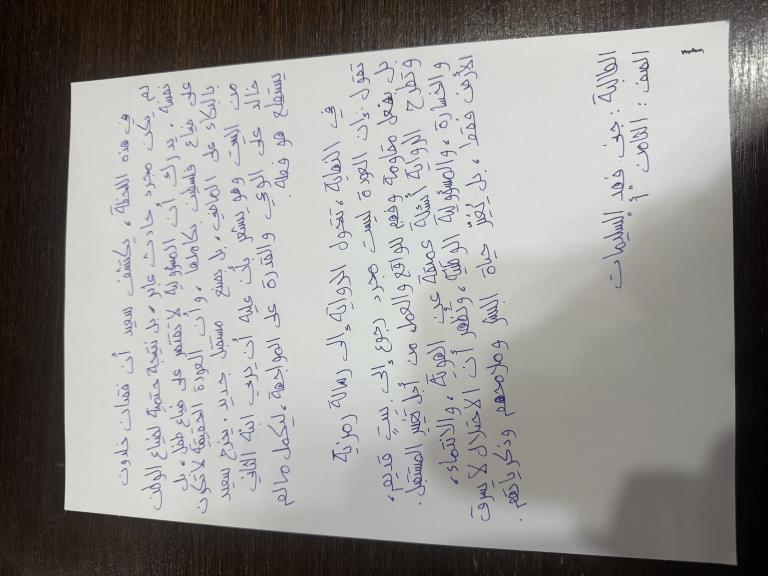 في هذه اللحظة، يكتشف سعيد أن فقدان خلدون
لم يكن مجرد حادث عابر، بل نتيجة حتمية لضياع الوطن
نفسه. يدرك أن المسؤولية لا تقتصر على ضياع طفل، بل
على ضياع فلسطين بكاملها، وأن العودة الحقيقية لا تكون
بالبكاء على الماضي، بل بصنع مستقبل جديد. يخرج سعيد
من البيت وهو يشعر بأن عليه أن يربي ابنه الثاني
خالد على الوعي والقدرة على المواجهة، ليكمل ما لم
يستطع هو فعله.
في النهاية، تتحول الرواية إلى رسالة رمزية
تقول إن العودة ليست مجرد رجوع إلى بيت قديم،
بل هي فعل مقاومة وفهم للواقع والعمل من أجل تغيير المستقبل.
وتطرح الرواية أسئلة عميقة عن الهوية، والانتماء،
والخسارة، والمسؤولية الوطنية، وتظهر أن الاحتلال لا يسرق
الأرض فقط، بل يُغيّر حياة البشر وملامحهم وذكرياتهم.
الطالبة: جنى فهد السليمات
الصف: الثامن "أ"